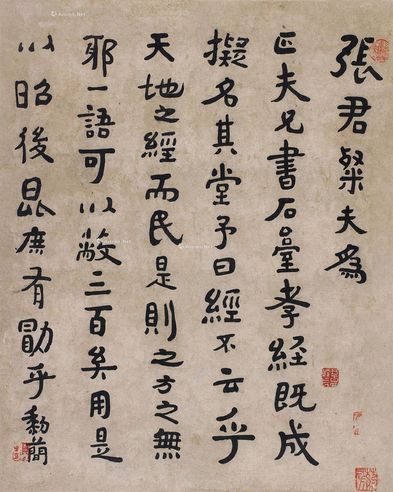 張君粲夫為
夫兄書石臺孝經既成
擬名其堂予曰經不云乎
天地之經而民是則之方之無
耶一語可以蔽三百矣用是
以昭後昆庶有勖乎